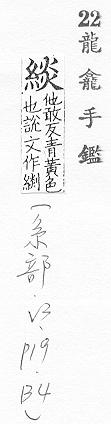 22龍龕手鑑
緂
他敢友青黃色
也說文作
〔糸部·V2·P19·B4〕